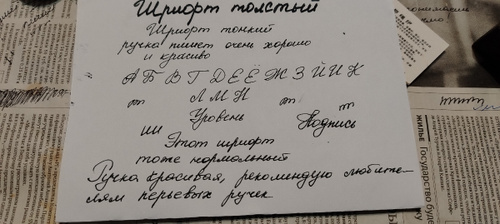 Шрифт толстый
Шрифт тонкий
ручка пишет очень хорошо
и красиво
А Б В Г Д Е Ё Ж З Й И К
т Л М Н т т
Уровень Подпись
ш
Этот шрифт
тоже нормальный
Ручка красивая, рекомендую любите-
лям перьевых ручек
ЖИЛЬЕ